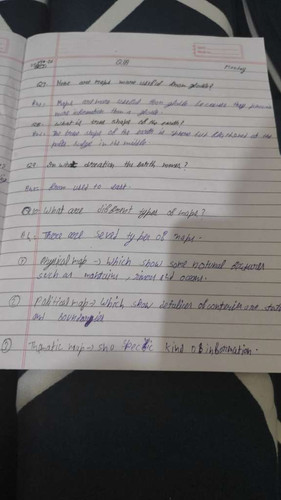 Q/A
Q1. How are maps more useful than globe?
Ans. Maps are more useful than globe because they provide
more information than a globe.
What is true shape of the earth?
Ans. The true shape of the earth is sphere but flattened at the
poles bulge in the middle
Q3. In what direction the earth moves?
Ans. From west to east.
Q4. What are different types of maps?
A4. There are sevral types of maps -
① Physical map → Which show some natural features
such as montains, rivers and oceans.
② Political map → Which show detailes of contenies and state
and boundaries
③ Thematic map → sho specific kind of information.